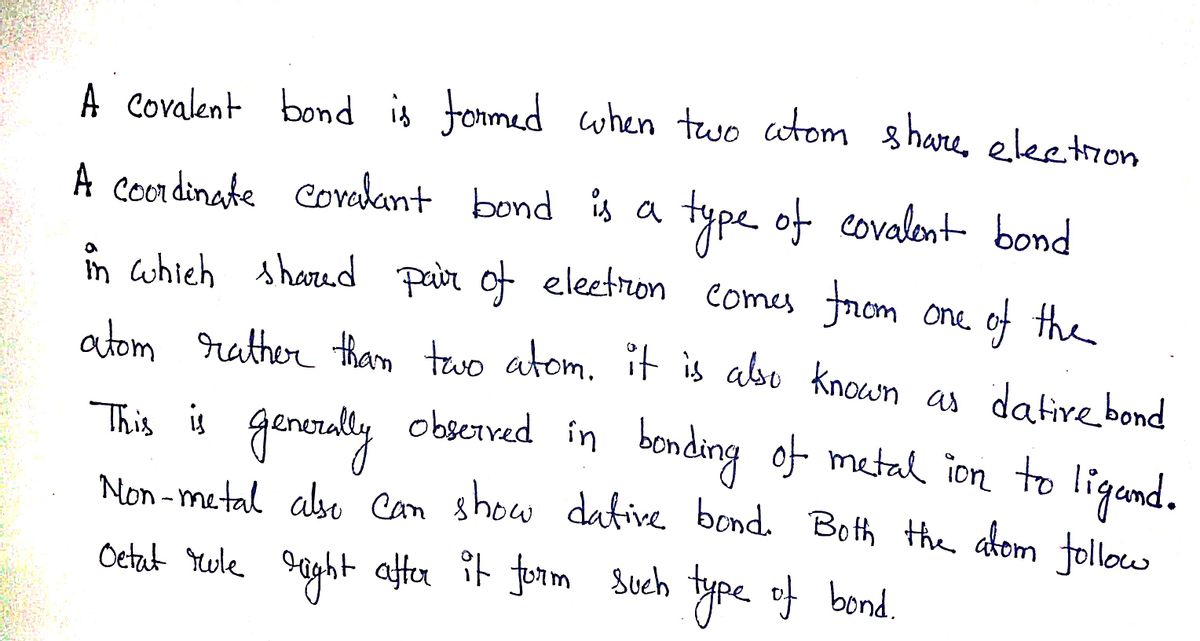 A covalent bond is formed when two atom share electron
A coordinate covalant bond is a type of covalent bond
in which shared pair of electron comes from one of the
atom rather than two atom. it is also known as dative bond
This is generally observed in bonding of metal ion to ligand.
Non-metal also can show dative bond. Both the atom follow
Octat rule right after it form such type of bond.